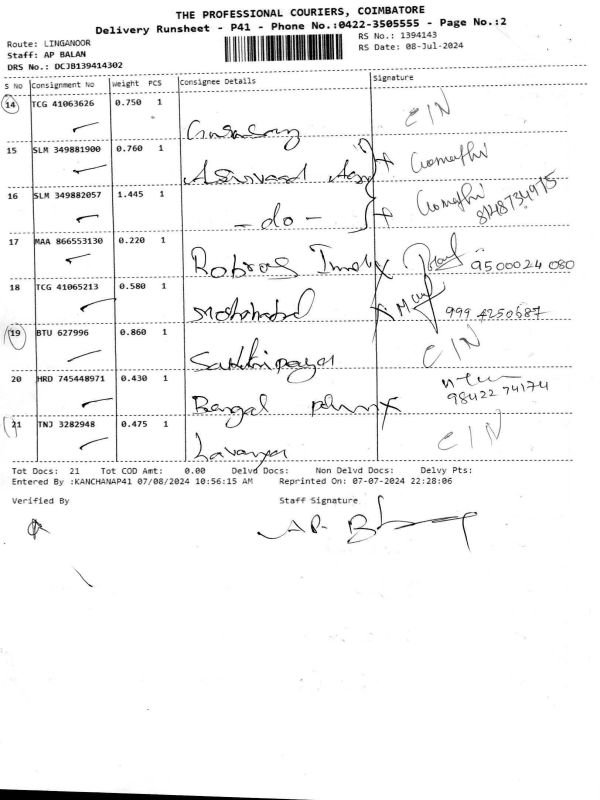 THE PROFESSIONAL COURIERS, COIMBATORE
Delivery Runsheet - P41 - Phone No.:0422-3505555 - Page No.:2
Route: LINGANOOR
RS No.: 1394143
Staff: AP BALAN
RS Date: 08-Jul-2024
DRS No.: DCJB139414302
S No Consignment No Weight PCS Consignee Details Signature
14 TCG 41063626 0.750 1 CIN
15 SLM 349881900 0.760 1 Gomathi
16 SLM 349882057 1.445 1 - do - Gomathi
8148734975
17 MAA 866553130 0.220 1 9500024080
18 TCG 41065213 0.580 1 999 4250687
19 BTU 627996 0.860 1 CIN
20 HRD 745448971 0.430 1 Bengal
98422 74174
21 TNJ 3282948 0.475 1 Lavanya CIN
Tot Docs: 21 Tot COD Amt: 0.00 Delvd Docs: Non Delvd Docs: Delvy Pts:
Entered By :KANCHANAP41 07/08/2024 10:56:15 AM Reprinted On: 07-07-2024 22:28:06
Verified By Staff Signature
AP. B